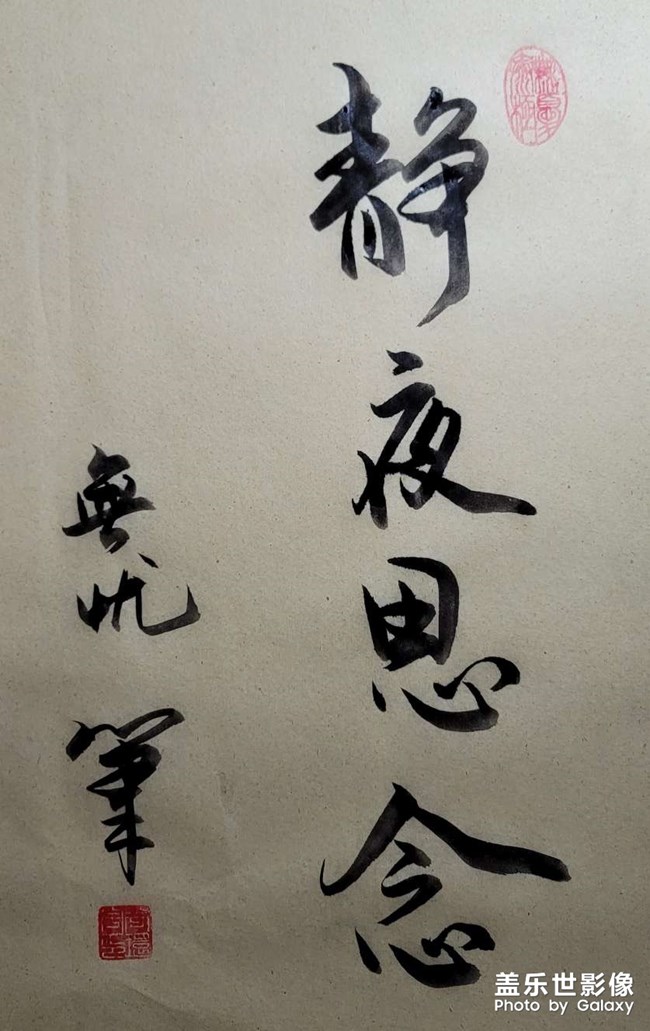 靜夜思念
無忧
筆
盖乐世影像
Photo by Galaxy